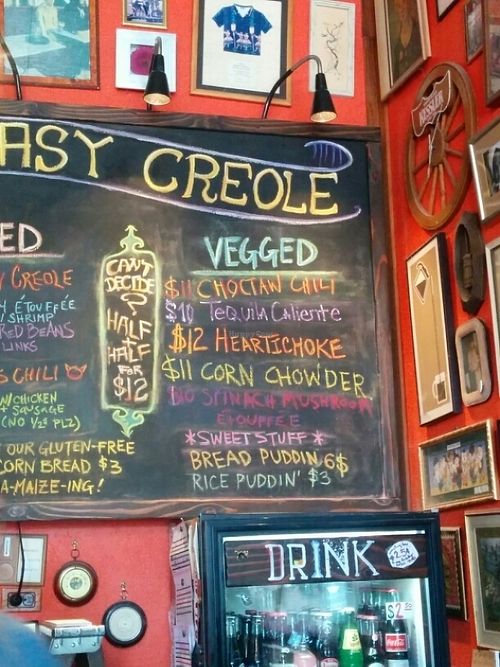 ASY CREOLE
ED
Y CREOLE
ÉTOUFFÉE
SHRIMP
RED BEANS
LINKS
S CHILI
W/CHICKEN
+ SAUSAGE
(NO 1/2S PLZ)
OUR GLUTEN-FREE
CORN BREAD $3
A-MAIZE-ING!
CAN'T
DECIDE
?
HALF
+
HALF
FOR
$12
VEGGED
$11 CHOCTAW CHILI
$10 TEQUILA CALIENTE
$12 HEARTICHOKE
$11 CORN CHOWDER
$10 SPINACH MUSHROOM
ÉTOUFFÉE
*SWEET STUFF*
BREAD PUDDIN 6$
RICE PUDDIN' $3
DRINK
$2